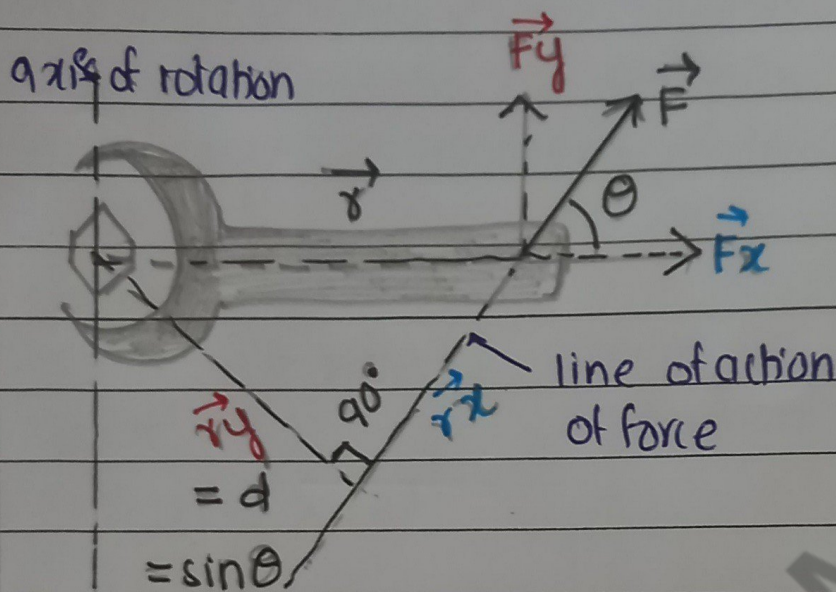 axis of rotation
F⃗y
F⃗
r⃗
θ
F⃗x
line of action
of force
90°
r⃗x
r⃗y
= d
= sinθ